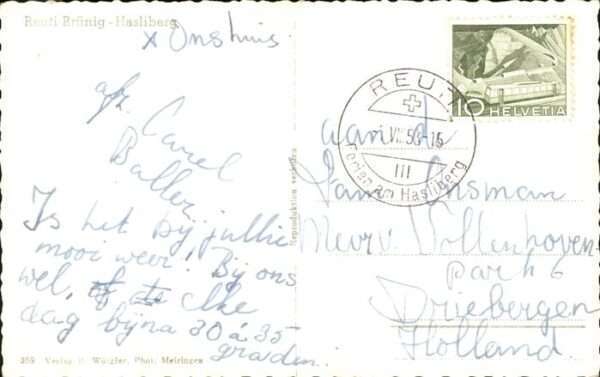 Reuti Brünig - Hasliberg
x Ons huis
afz. Carel
Baller
Is het bij jullie
mooi weer? Bij ons
wel, elke
dag bijna 30 á 35
graden.
369 Verlag B. Würgler, Phot. Meiringen
Reproduktion verboten
REUTI
VII.56-16
III
Ferien am Hasliberg
10 HELVETIA
aan de
Fam. Onsman
Mevr. v. Vollenhoven
park 6
Driebergen
Holland.